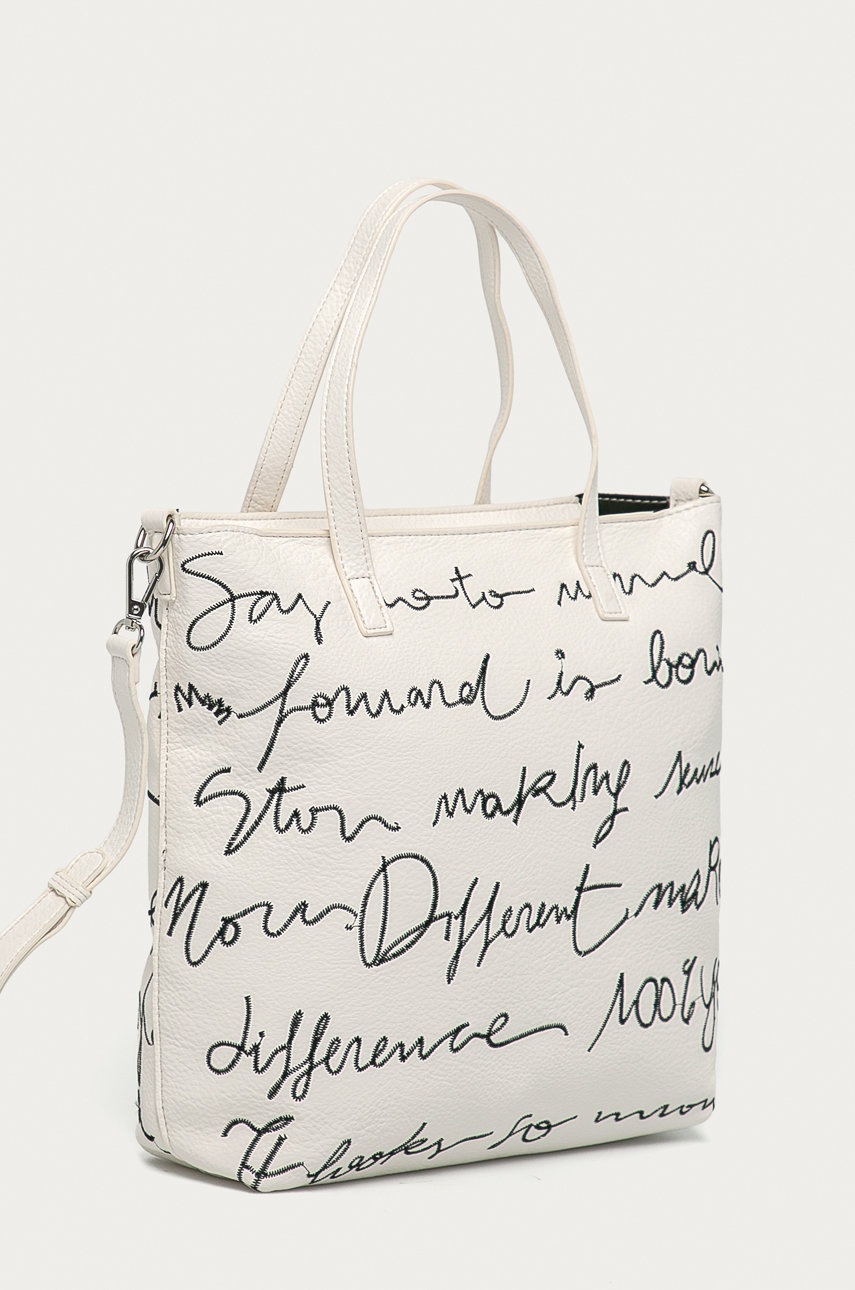 Say no to normal
forward is bori
Stop making sense
Different make
difference 100% y
looks so